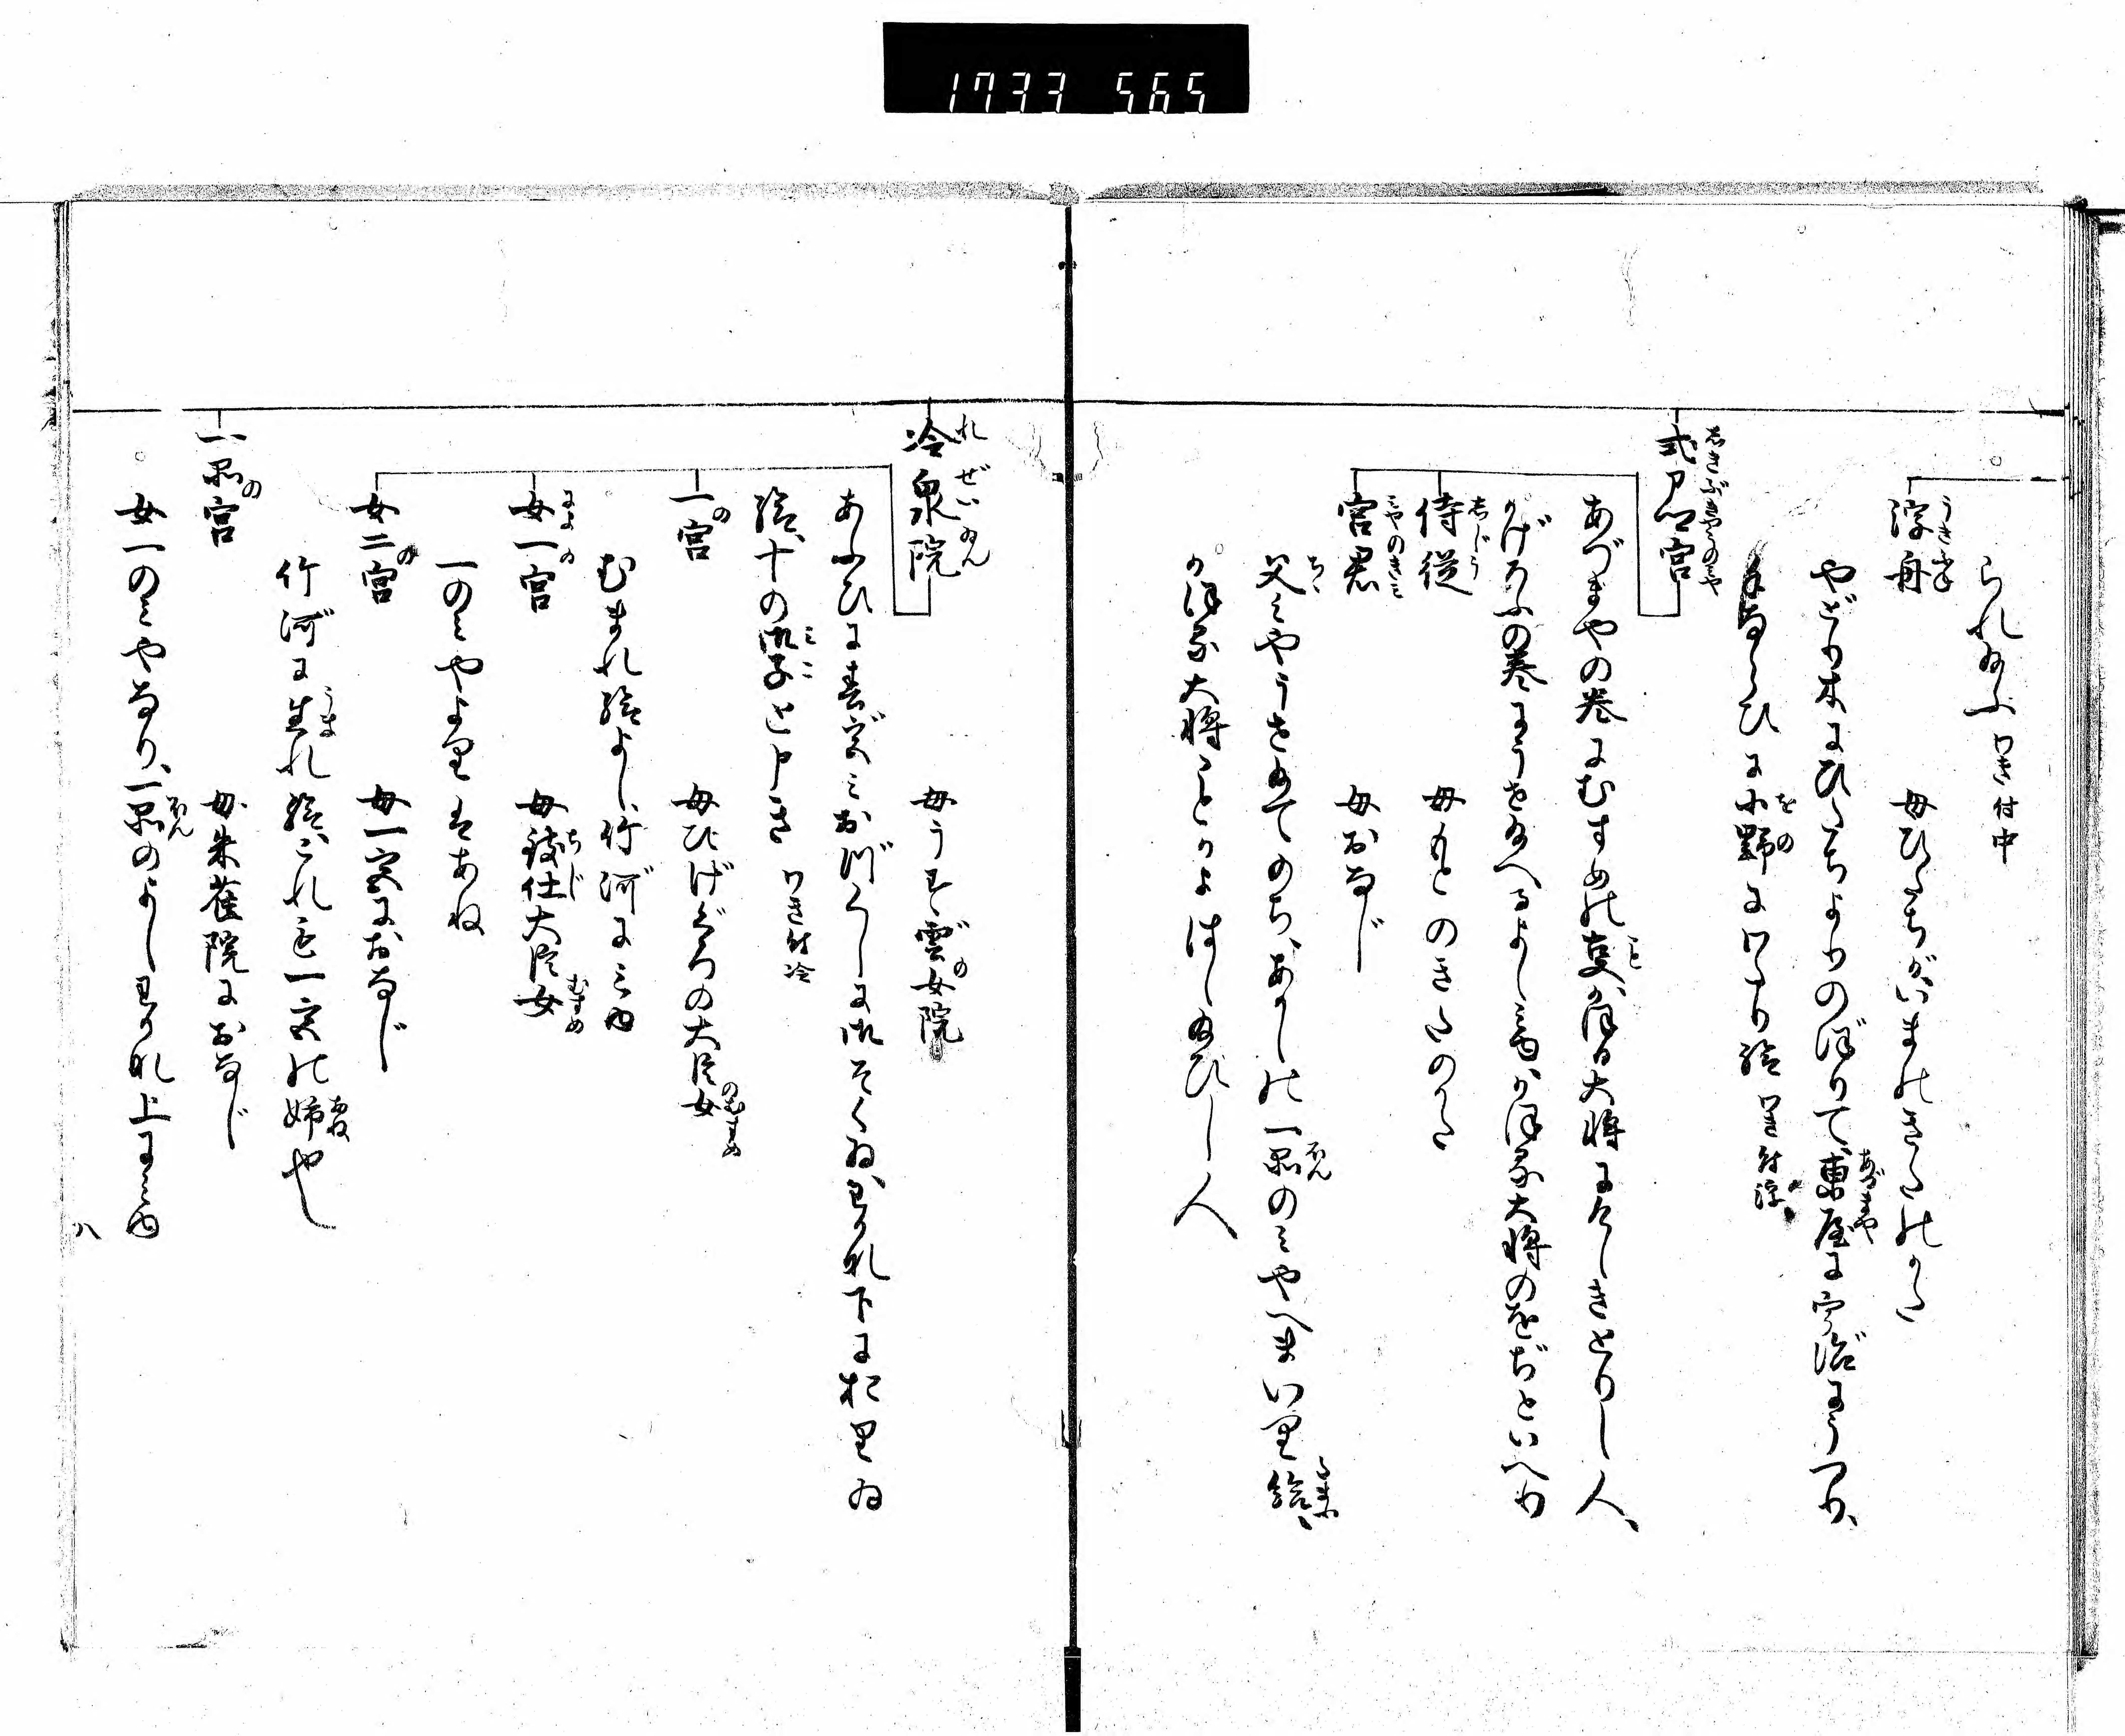 1733 565
られ給ふ わき付中
浮舟 うきふね 母ひたちがいまのきたのかた
やどり木にひたちよりのぼりて、東屋に宇治にうつり、
手ならひに小野にわたり給 わき付浮
式部卿宮 しきぶきやうのみや
あづまやの巻にむすめの事かほる大将にけしきとりし人、
かげろふの巻にうせ給へるよしみゆ、かほる大将のをぢといへり
侍従 じじう 母もとのきたのかた
宮君 みやのきみ 母おなじ
父みやうせ給てのち、あかしの一品のみやへまいり給、
かほる大将ことかよはし給ひし人
冷泉院 れぜいゐん 母うす雲の女院
あふひに春宮、みおつくしに御そくゐ、わかな下におりゐ
給、十の御子と申き わき付冷
一の宮 母ひげぐろの大臣女
むまれ給よし、竹河にみゆ
女一宮 母致仕大臣女
一のみやよりはあね
女二の宮 母一宮におなじ
竹河に生れ給、これも一宮の姉也
一品の宮 母朱雀院におなじ
女一のみやなり、一品のよしわかな上にみゆ
八